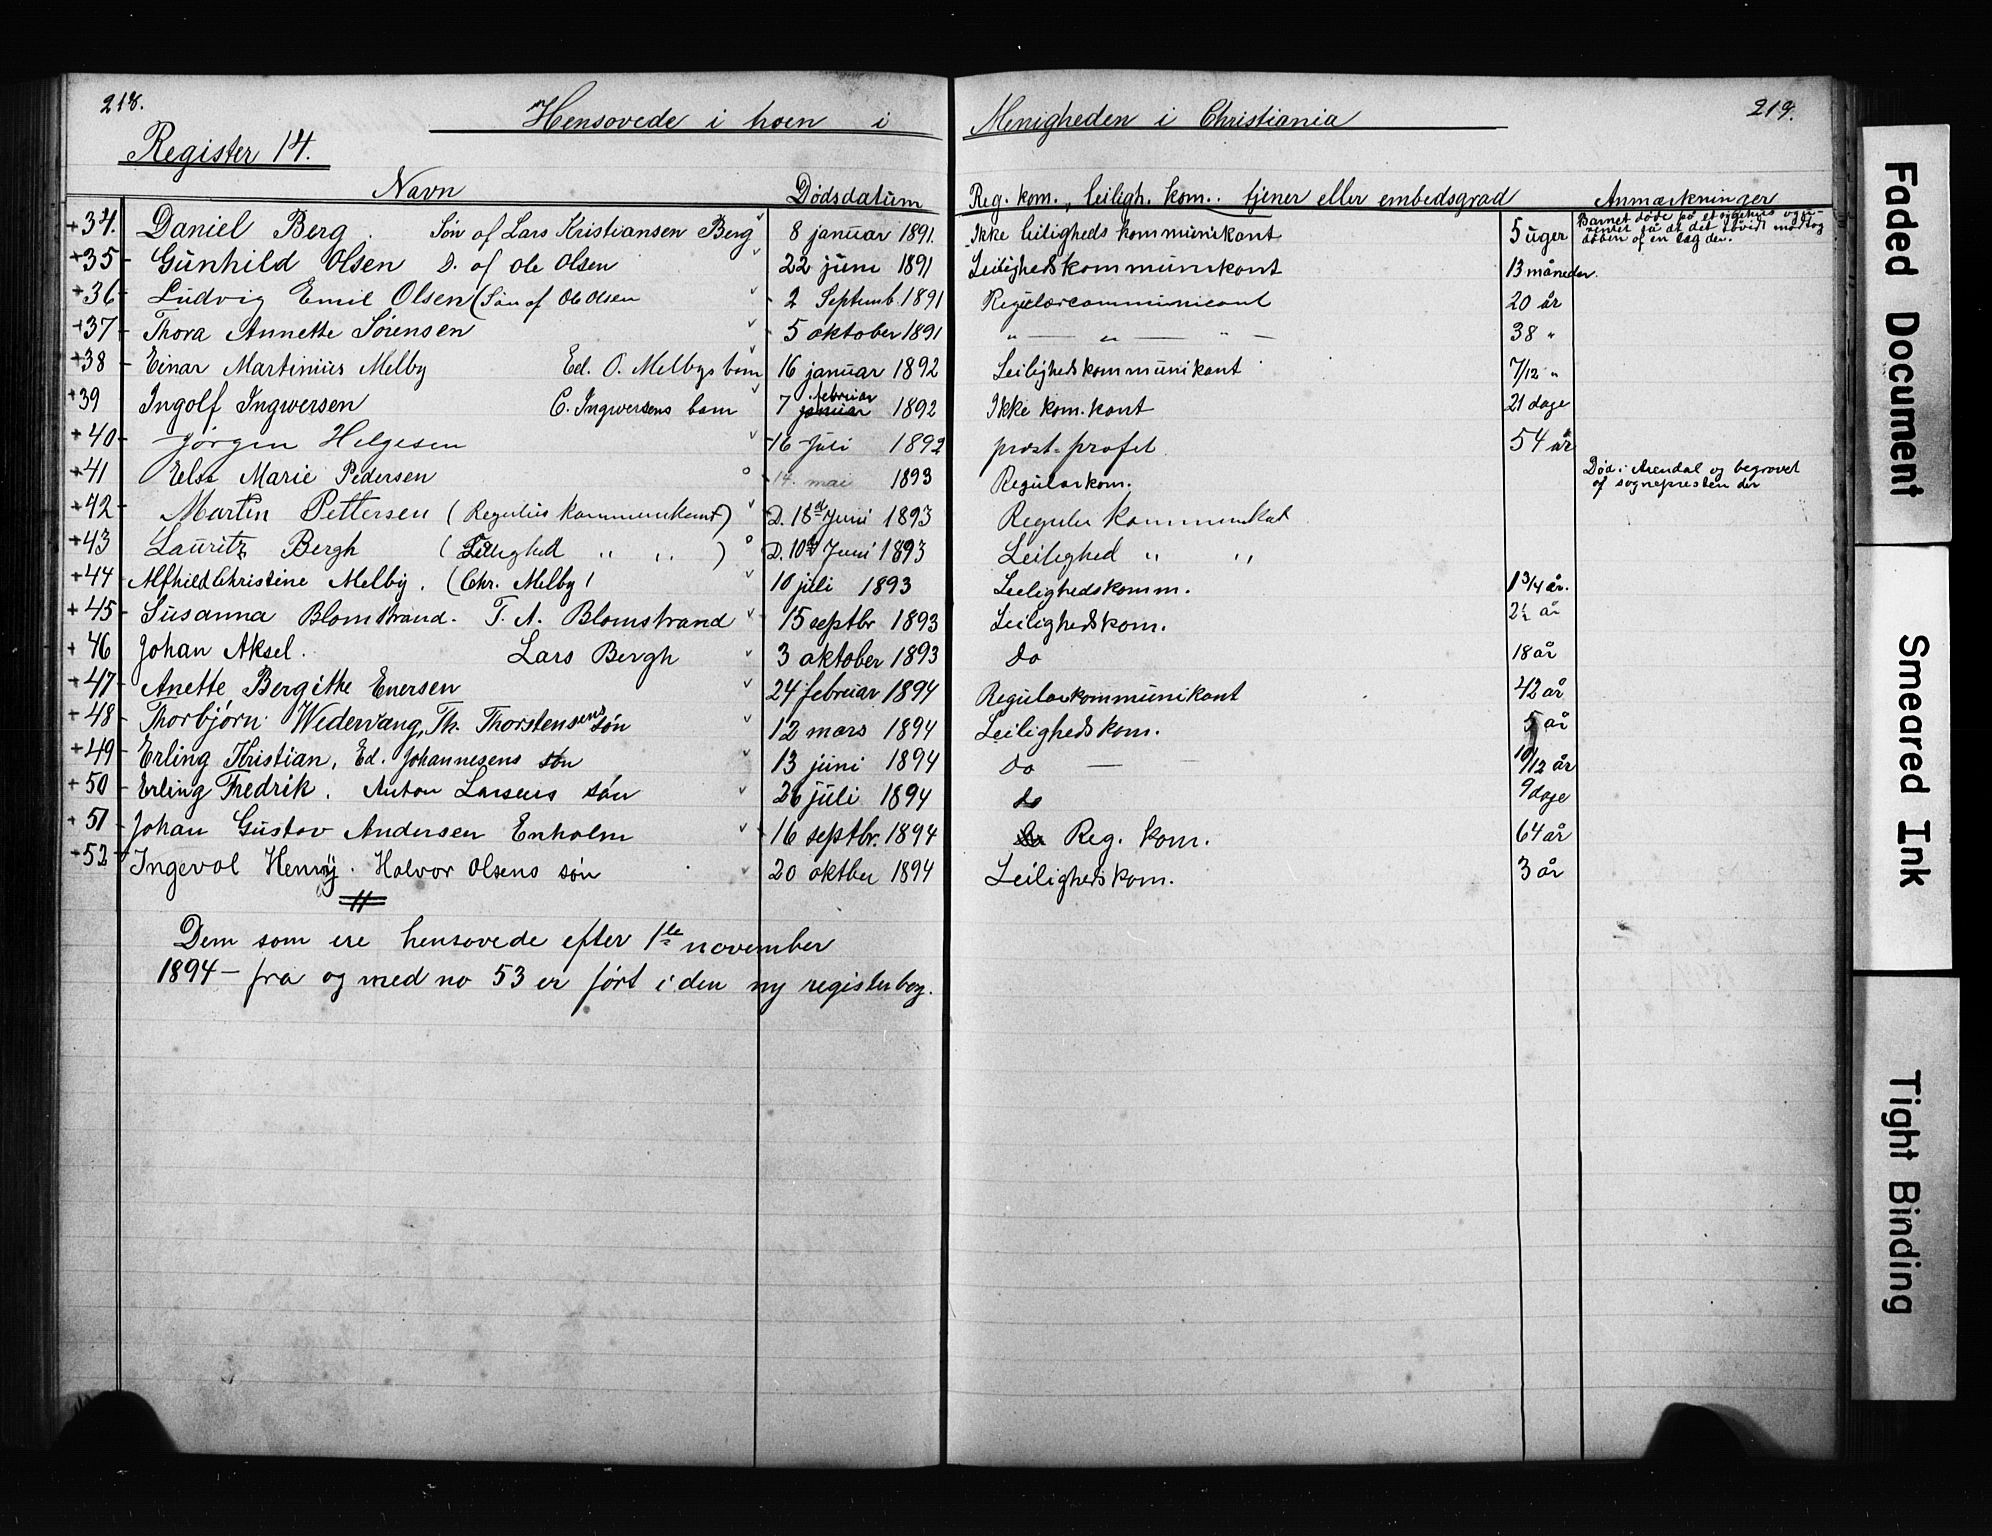 218.
Hensovede i hver i Menigheden i Christiania
219.
Register 14.
Navn Dødsdatum Reg. kom., leiligh. kom.. tjener eller embedsgrad Anmærkninger
+34. Daniel Berg. Søn af Lars Kristiansen Berg 8 januar 1891. Ikke leiligheds kommunikant 5 uger Barnet døde på
døben af en læg der.
+35 Gunhild Olsen D. af Ole Olsen 22 juni 1891 Leilighedskommunikant 13 måneder.
+36 Ludvig Emil Olsen (Søn af Ole Olsen 2 Septemb. 1891 Regulærcommunicant 20 år
+37 Thora Annette Sørensen 5 oktober 1891 " — " — " — 38 "
+38 Einar Martinius Melby Ed. O. Melbys barn 16 januar 1892 Leilighedskommunikant 7/12 "
+39 Ingolf Ingwersen C. Ingwersens barn 7 januar februar 1892 Ikke kom.kant 21 dage
+40 Jørgen Helgesen 16 Juli 1892 præst-profet 54 år
+41 Else Marie Pedersen 14. mai 1893 Regularkom. Død i Arendal og begravet
af sognepresten der
+42 Martin Pettersen (Regulær kommunikant) D. 18d Juni 1893 Regulær Kommunikat
+43 Lauritz Bergh (Leilighed " ") D. 10d Juni 1893 Leilighed " "
+44 Alfhild Christine Melby. (Chr. Melby) 10 juli 1893 Leilighedskomm. 1 3/4 år.
+45 Susanna Blomstrand. T. A. Blomstrand 15 septbr 1893 Leilighedskom. 2½ år
+46 Johan Aksel. Lars Bergh 3 oktober 1893 do 18 år
+47 Anette Bergithe Enersen 24 februar 1894 Regularkommunikant 42 år
+48 Thorbjørn Wedervang, Th. Thorstensens søn 12 mars 1894 Leilighedskom. 5 år
+49 Erling Kristian, Ed. Johannesens søn 13 juni 1894 do — — 10/12 år
+50 Erling Fredrik. Anton Larsens søn 26 juli 1894 do 9 dage
+51 Johan Gustav Andersen Enholm 16 septbr. 1894 do Reg. kom. 64 år
+52 Ingevol Henry. Halvor Olsens søn 20 oktber 1894 Leilighedskom. 3 år
Dem som ere hensovede efter 1ste november
1894 – fra og med no 53 er ført i den ny registerbog.
Faded Document
Smeared Ink
Tight Binding